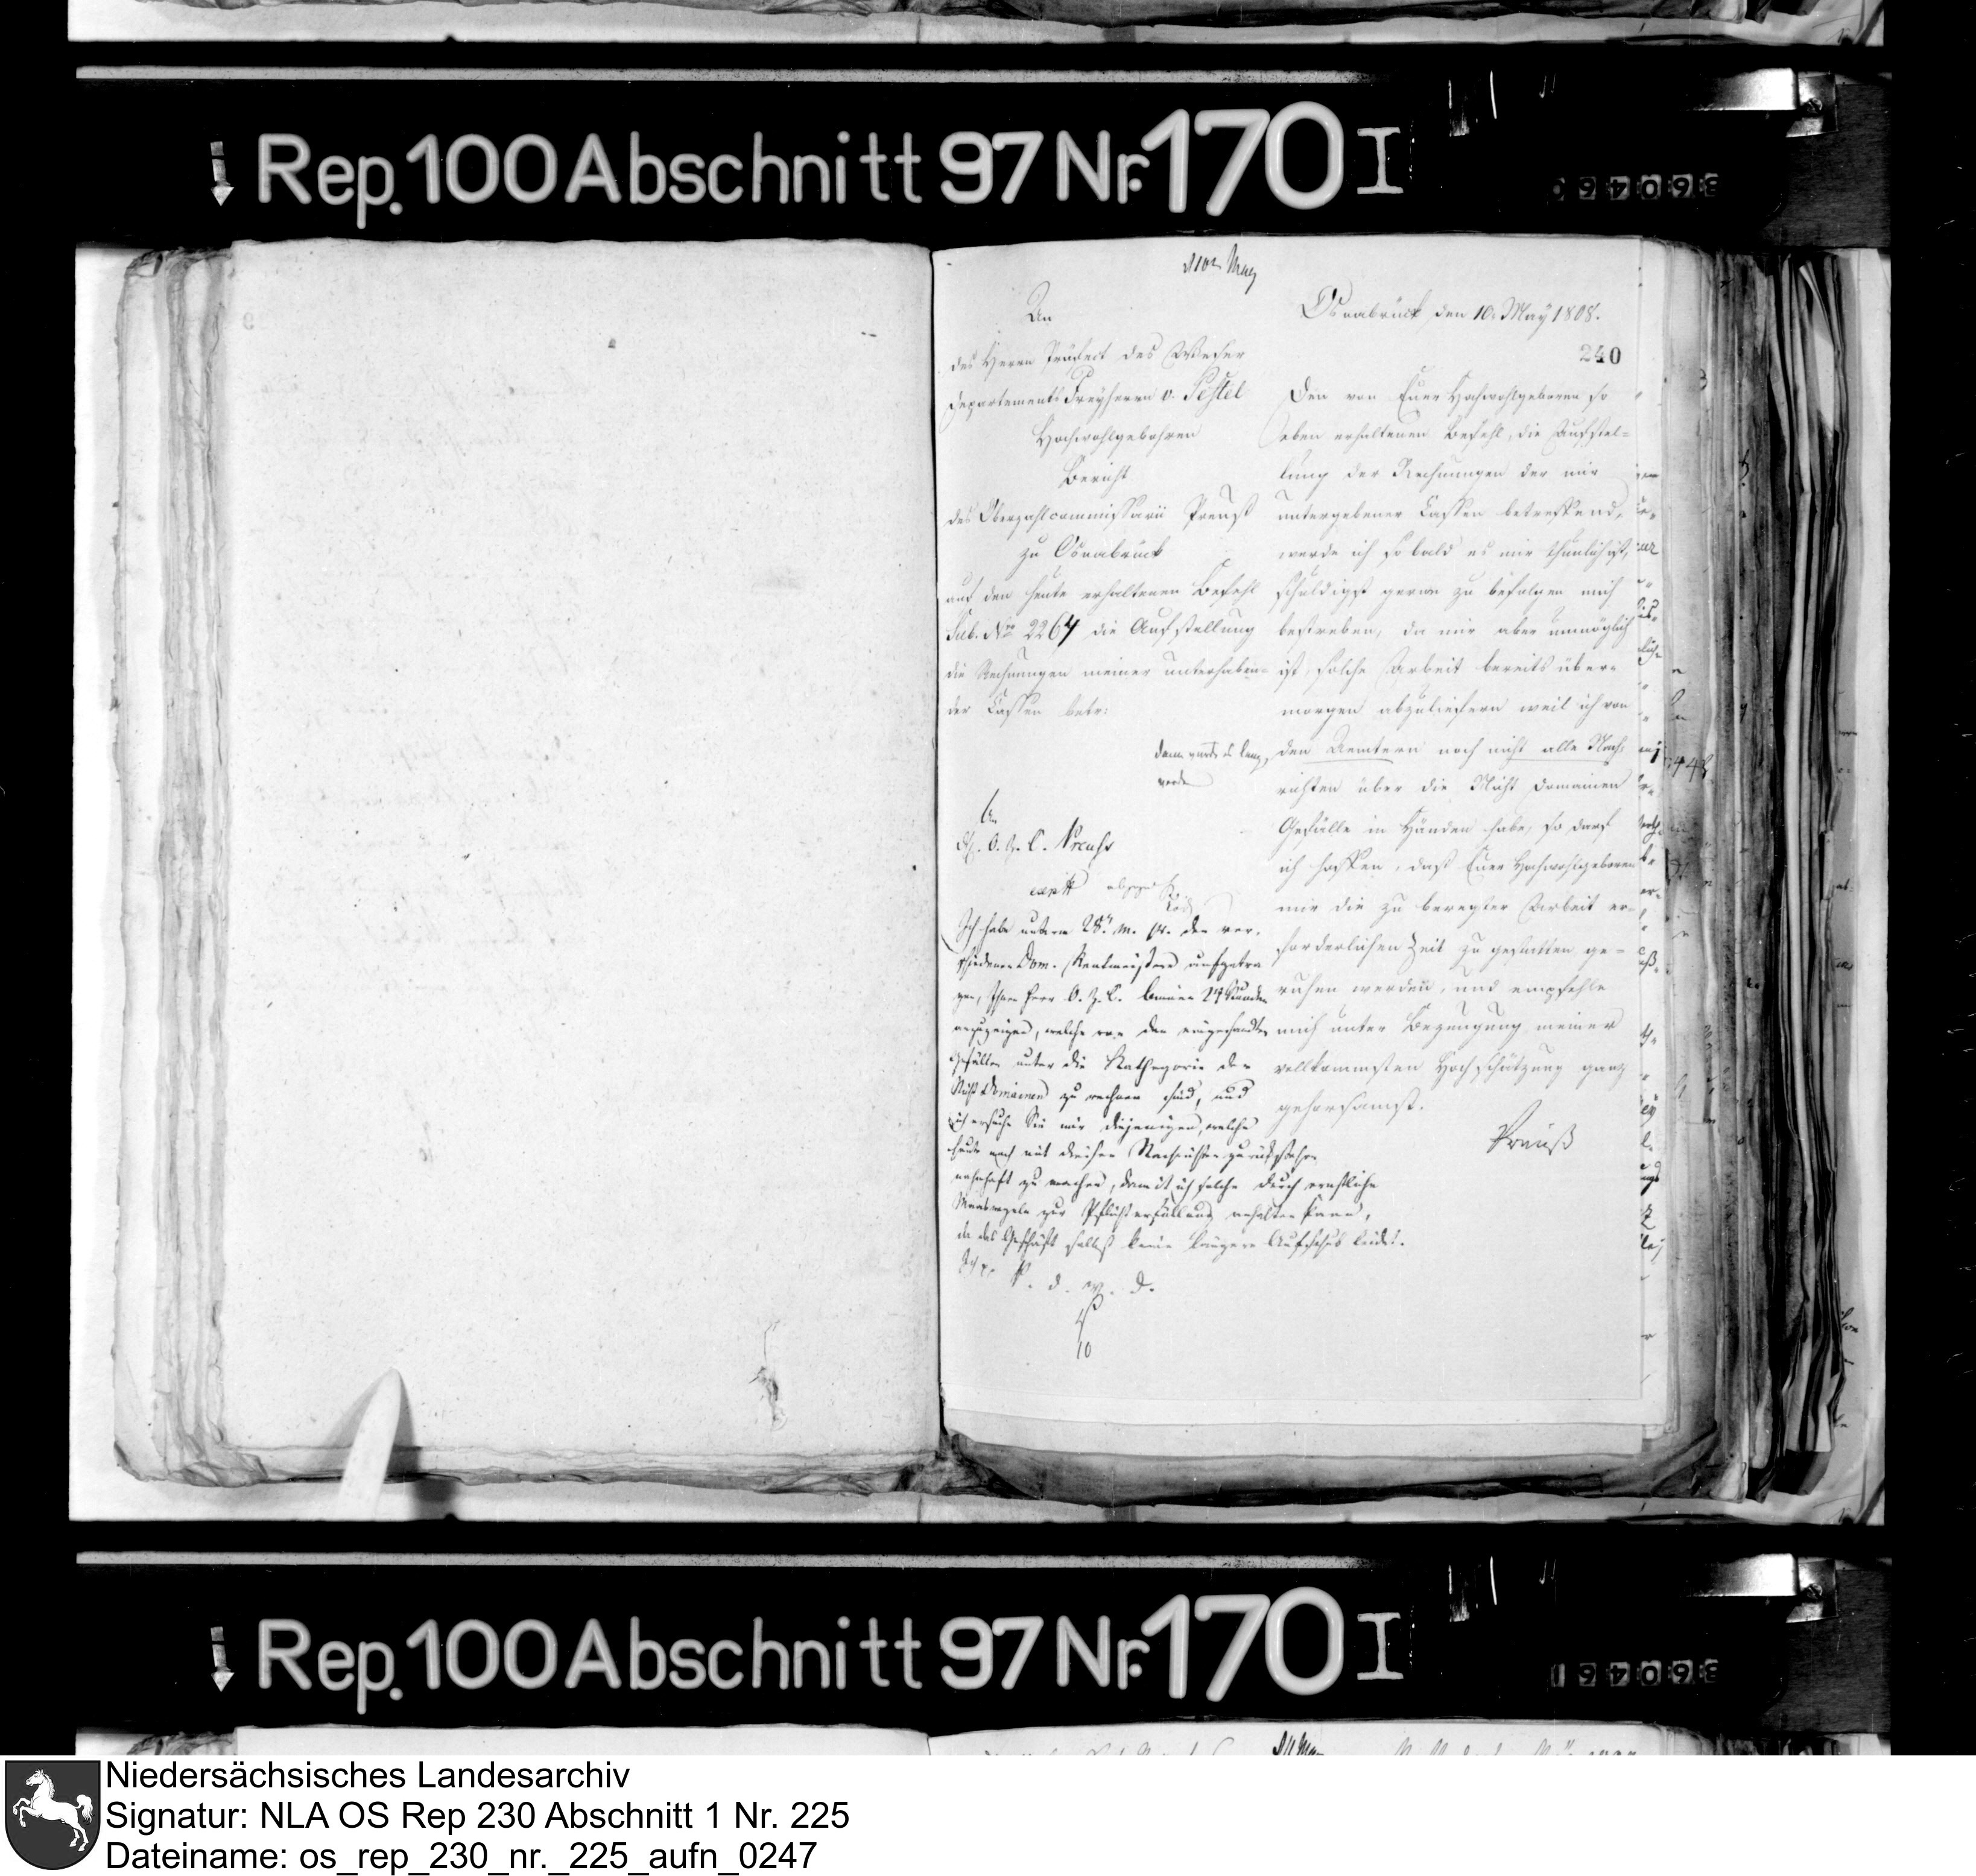 Rep. 100 Abschnitt 97 Nr. 170 I
360460
Osnabrück, den 10. May 1808.
240
An
des Herrn Präfect des Weser
Departements Freyherrn v. Pestel
Hochwohlgebohren
Bericht
des Oberzahlcommissarii Preuß
zu Osnabrück
auf den heute erhaltenen Befehl
Sub. No 2264 die Aufstellung
die Rechnungen meiner unterhaben-
der Cassen betr:
Den von Euer Hochwohlgeboren so
eben erhaltenen Befehl, die Aufstel-
lung der Rechnungen der mir
untergebener Cassen betreffend,
werde ich so bald es mir thunlich ist,
schuldigst gerne zu befolgen mich
bestreben, da mir aber unmöglich
ist, solche Arbeit bereits über-
morgen abzuliefern weil ich von
den Aemtern noch nicht alle Nach-
richten über die Nicht Domainen
Gefälle in Händen habe, so darf
ich hoffen, daß Euer Hochwohlgeboren
mir die zu beregter Arbeit er-
forderlichen Zeit zu gestatten ge-
ruhen werden, und empfehle
mich unter Bezeugung meiner
vollkommsten Hochschätzung ganz
gehorsamst.
Preuß
An
O. Z. C. Preuss
Ich habe unterm 28. m. pr. den ver-
schiedenen Dom. Rentmeistern aufgetra
gen, Ihnen Herr O. Z. C. binnen 24 Stunden
anzuzeigen, welche von den eingesandten
Gefällen unter die Kathegorie der
Nicht Domainen zu rechnen sind, und
ich ersuche Sie mir diejenigen, welche
heute noch mit diesen Nachrichten zurückstehen
nahmhaft zu machen, damit ich solche durch ernstliche
Maasregeln zur Pflichterfüllung anhalten kann,
da das Geschäft selbst keine längere Aufschub leidet.
P. d. W. D.
10
Rep. 100 Abschnitt 97 Nr. 170 I
360461
Niedersächsisches Landesarchiv
Signatur: NLA OS Rep 230 Abschnitt 1 Nr. 225
Dateiname: os_rep_230_nr._225_aufn_0247